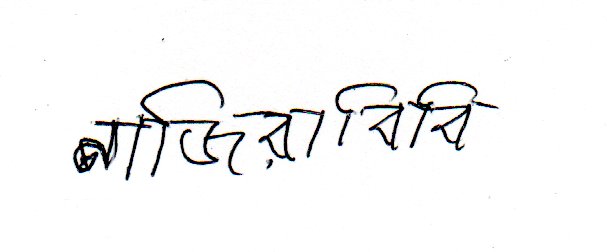 নাজিরা বিবি